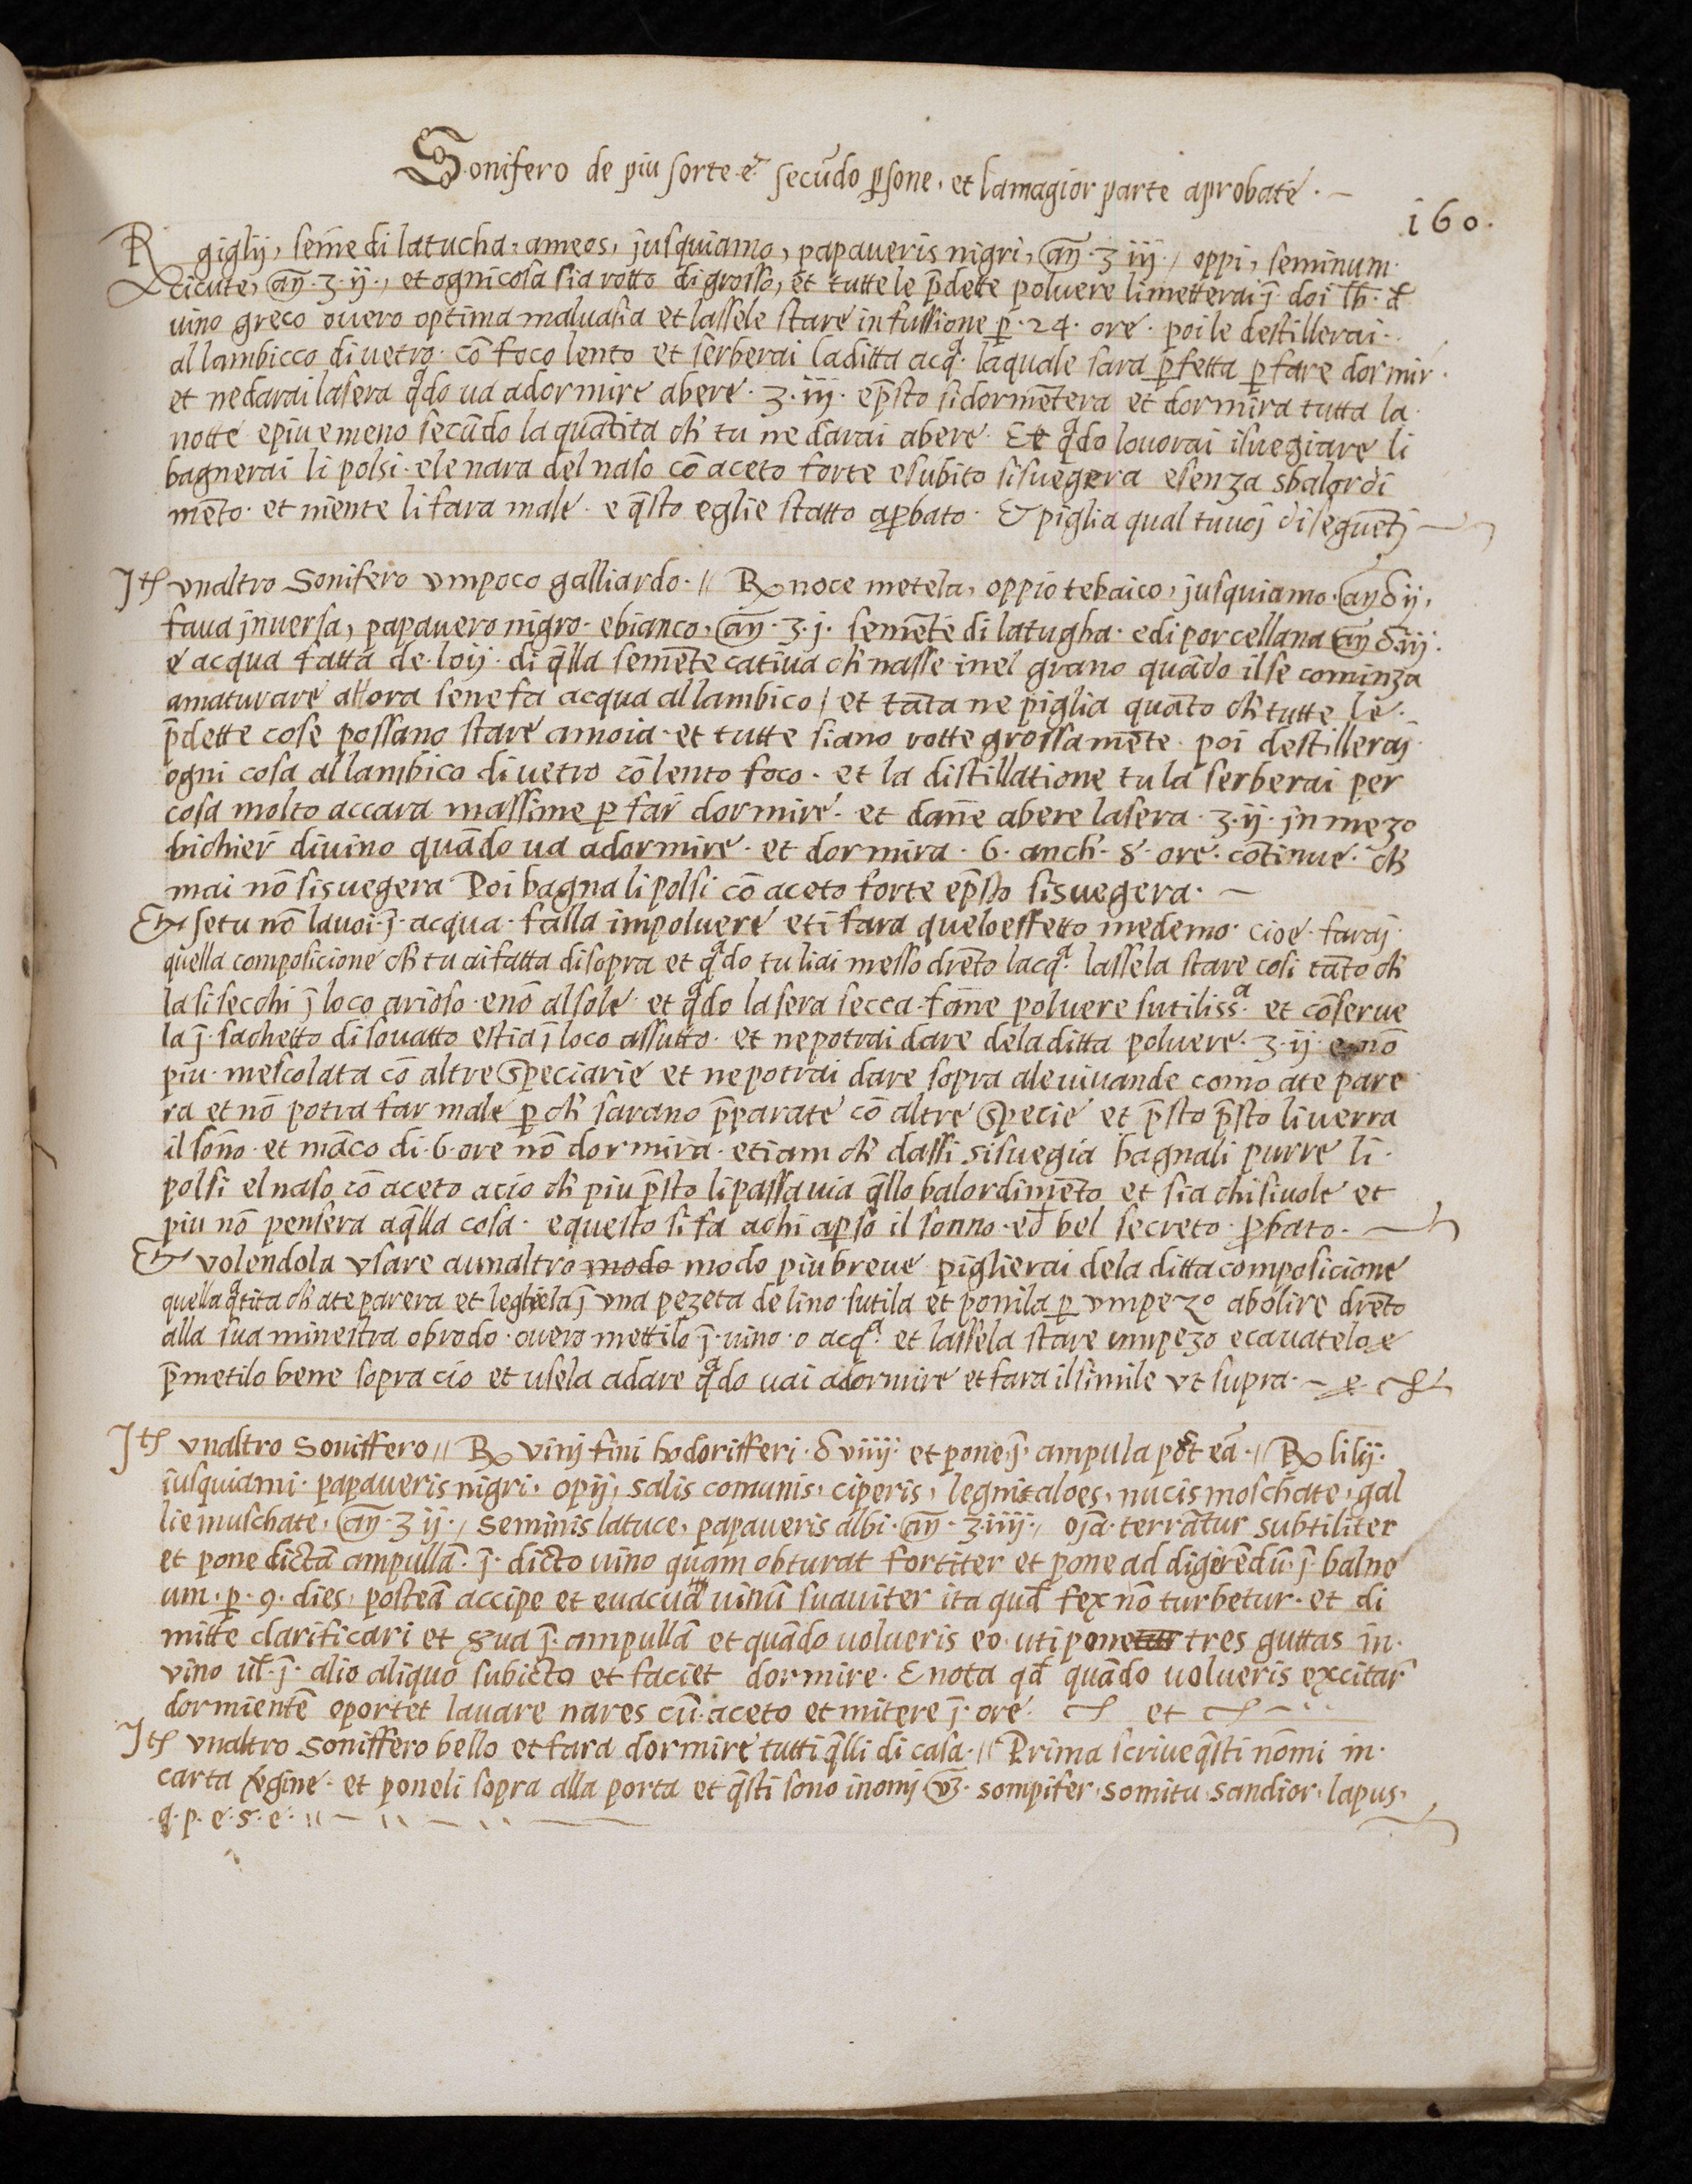 Sonifero de piu sorte e secūdo p̱sone, et lamagior parte aprobate. –
160.
R giglij, sem̄e di latucha, ameos, jusquiamo, papaueris nigri, añ. ʒ iij., oppi, seminum
cicute, añ. ʒ. ij., et ognicosa sia rotto di grosso, et tutte le p̄dette poluere limetterai j̄ doi lb̄. đ
uino greco ouero optima maluasia et lassele stare infussione p̱. 24. ore. poi le destillerai.
al lambicco di uetro. cō foco lento et serberai la ditta acqᵃ. laquale sara p̱fetta p̱ fare dormir.
et nedarai lasera qᵃdo ua adormire abere. ʒ. iij. ep̄sto sidormētera et dormira tutta la.
notte epiu emeno secūdo la quātita ch̄ tu ne darai abere. Et qᵃdo lovorai isuegiare li
bagnerai li polsi. ele nara del naso cō aceto forte esubito sisuegera esenza sbalordi
mēto. et niente lifara male. e q̄sto eglie statto ap̱bato. & piglia qual tuuoj di seguētj
Jtē unaltro Sonifero umpoco galliardo. // ℞ noce metela, oppio tebaico, jusquiamo. añ δ ij,
faua jnuersa, papauero nigro. ebianco, añ. ʒ. j. semēte di latugha. edi porcellana añ δ. iij.
e acqua fatta de. loij. di q̄lla semēte catiua ch̄ nasse inel grano quādo il se cominza
amaturare allora senefa acqua al lambico / et tāta ne piglia quāto ch̄ tutte le.
p̄dette cose possano stare amoia. et tutte siano rotte grossamēte. poi destilleraj
ogni cosa al lambico di uetro cō lento foco. et la distillatione tu la serberai per
cosa molto accara massime p̱ far dormire. et dan̄e abere lasera. ʒ. ij. jn mezo
bichier diuino quādo ua adormire. et dormira. 6. anch̄. 8. ore. cōtinue. ch̄
mai nō sisuegera Poi bagna li polsi cō aceto forte ep̄sto sisuegera. –
& setu nō lauoi. j̄. acqua. falla impoluere et ī fara queloeffetto medemo. cioe. faraj.
quella composicione ch̄ tu ai fatta disopra et qᵃdo tu liai messo drēto lacqᵃ. lassela stare cosi tāto ch̄
la si secchi j̄ loco arioso. enō al sole. et qᵃdo la sera secca. fan̄e poluere sutilissᵃ. et cōserue
la j̄. sachetto di souatto estia j̄ loco assutto. et nepotrai dare dela ditta poluere. ʒ. ij. e nō
piu. mescolata cō altre Speciarie et nepotrai dare sopra ale uiuande como ate pare
ra et nō potra far male p̱ ch̄ sarano p̄parate cō altre Specie et p̄sto p̄sto li uerra
il sōno. et māco di. 6. ore nō dormira. etiam ch̄ dassi sisuegia bagnali purre li.
polsi el naso cō aceto acio ch̄ piu p̄sto li passa uia q̄llo balordimēto et sia chi siuole et
piu nō pensera aq̄lla cosa. equesto si fa achi ap̱so il sonno. ed bel secreto. p̱bato. –
& volendola usare aunaltro modo modo piubreue piglierai dela ditta composicione
quella qᵃtita ch̄ ate parera et leghela j̄ una pezeta de lino. sutila et ponila p̱ umpezo abolire drēto
alla sua minestra obrodo. ouero mettilo j̄. uino. o acqᵃ. et lassela stare umpezo ecauatelo e
p̄metilo bene sopra cio et usela adare qᵃdo uai adormire et fara il simile ut supra. –
Jtē unaltro Soniffero // ℞ vinj fini hodorifferi. δ viiij. et pone j̄. ampula post eā. // ℞ lilij.
iusquiami. papaueris nigri. opij, salis comunis, ciperis, legni aloes, nucis moschate, gal
lie muschate, añ. ʒ ij., Seminis latuce, papaueris albi. añ. ʒ. iiij., oīa. terrātur subtiliter
et pone dictā ampullā. j̄. dicto uino quam obturat fortiter et pone ad digerēdū. j̄. balne
um. p̱. 9. dies, posteā accipe et euacua uinū suauiter ita quđ fex nō turbetur. et di
mitte clarificari et s̄ua j̄. ampullā et quādo uolueris eo. uti pone tres guttas in.
vino ul̄. j̄. alio aliquo subicto et faciet dormire. E nota qđ quādo uolueris excitar̄
dormientē oportet lauare nares cū. aceto et mitere j̄. ore. et
Jtē unaltro Soniffero bello et fara dormire tutti q̄lli di casa. // Prima scriue q̄sti nōmi in.
carta v̄gine. et poneli sopra alla porta et q̄sti sono inomj vʒ. sompifer, somitu, sandior, lapus,
.q. p. e. s. e.